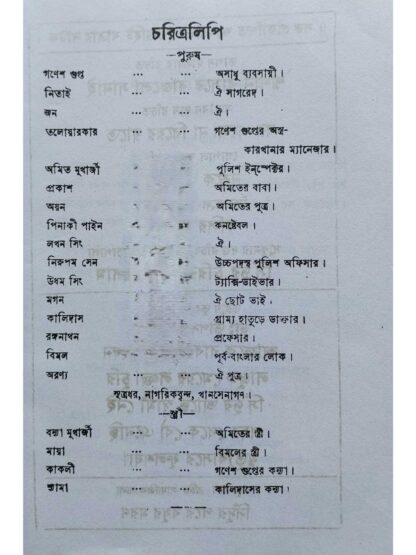 চরিত্রলিপি
—পুরুষ—
গণেশ গুপ্ত ... ... অসাধু ব্যবসায়ী।
নিতাই ... ... ঐ সাগরেদ।
জন ... ... ঐ।
তলোয়ারকার ... ... গণেশ গুপ্তের অস্ত্র-
কারখানার ম্যানেজার।
অমিত মুখার্জী ... ... পুলিশ ইন্সপেক্টর।
প্রকাশ ... ... অমিতের বাবা।
অয়ন ... ... অমিতের পুত্র।
পিনাকী পাইন ... ... কনষ্টেবল।
লখন সিং ... ... ঐ।
নিরুপম সেন ... ... উচ্চপদস্থ পুলিশ অফিসার।
উধম সিং ... ... ট্যাক্সি-ড্রাইভার।
মগন ... ... ঐ ছোট ভাই।
কালিদাস ... ... গ্রাম্য হাতুড়ে ডাক্তার।
রঙ্গনাথন ... ... প্রফেসার।
বিমল ... ... পূর্ব-বাংলার লোক।
অরণ্য ... ... ঐ পুত্র।
সূত্রধর, নাগরিকবৃন্দ, খানসেনাগণ।
—স্ত্রী—
বন্যা মুখার্জী ... ... অমিতের স্ত্রী।
মায়া ... ... বিমলের স্ত্রী।
কাকলী ... ... গণেশ গুপ্তের কন্যা।
শ্যামা ... ... কালিদাসের কন্যা।